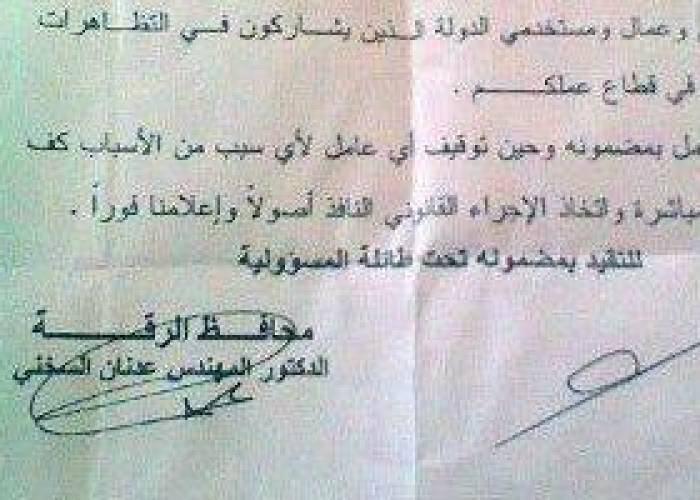 وعمال ومستخدمي الدولة الذين يشاركون في التظاهرات
في قطاع عملكم .
بمضمونه وحين توقيف أي عامل لأي سبب من الأسباب كف
واتخاذ الإجراء القانوني النافذ أصولاً وإعلامنا فوراً .
للتقيد بمضمونه تحت طائلة المسؤولية
محافظ الرقة
الدكتور المهندس عدنان السخني